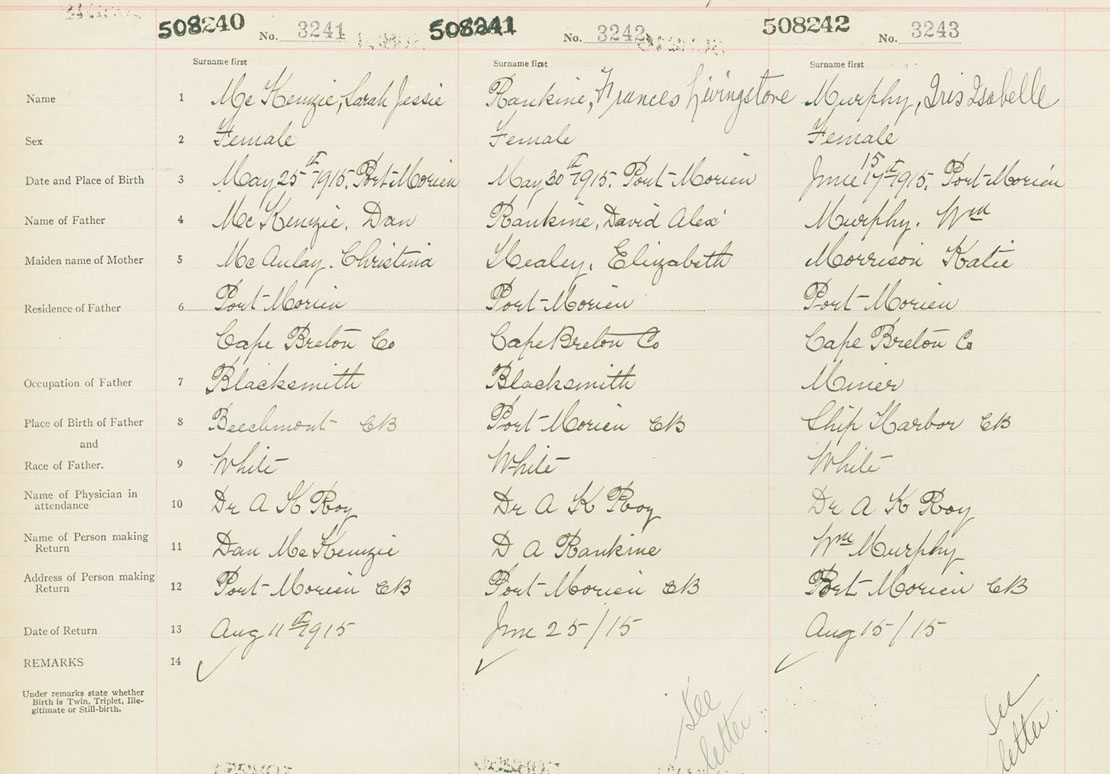 508240 No. 3241 508241 No. 3242 508242 No. 3243
Surname first Surname first Surname first
Name 1 McKenzie, Sarah Jessie Rankine, Frances Livingstone Murphy, Iris Isabelle
Sex 2 Female Female Female
Date and Place of Birth 3 May 25th 1915. Port-Morien May 30th 1915. Port-Morien June 15 17th 1915. Port-Morien
Name of Father 4 McKenzie, Dan Rankine, David Alex' Murphy. Wm
Maiden name of Mother 5 McAulay. Christina Healey, Elizabeth Morrison Katie
Residence of Father 6 Port-Morien Port-Morien Port-Morien
Cape Breton Co Cape Breton Co Cape Breton Co
Occupation of Father 7 Blacksmith Blacksmith Miner
Place of Birth of Father 8 Beechmont CB Port-Morien CB Ship Harbor CB
and
Race of Father. 9 White White White
Name of Physician in
attendance 10 Dr A K Roy Dr A K Roy Dr A K Roy
Name of Person making
Return 11 Dan McKenzie D A Rankine Wm Murphy
Address of Person making
Return 12 Port-Morien CB Port-Morien CB Port Morien CB
Date of Return 13 Aug 11th 1915 June 25/15 Aug 15/15
REMARKS 14
Under remarks state whether
Birth is Twin, Triplet, Ille-
gitimate or Still-birth.
See
letter
See
letter